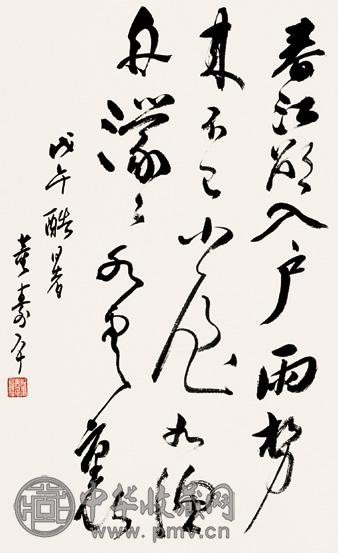 春江欲入户雨势
来不已小屋如渔
舟濛々水云裏
戊午酷暑
董寿平
中华收藏网
www.pmv.cn